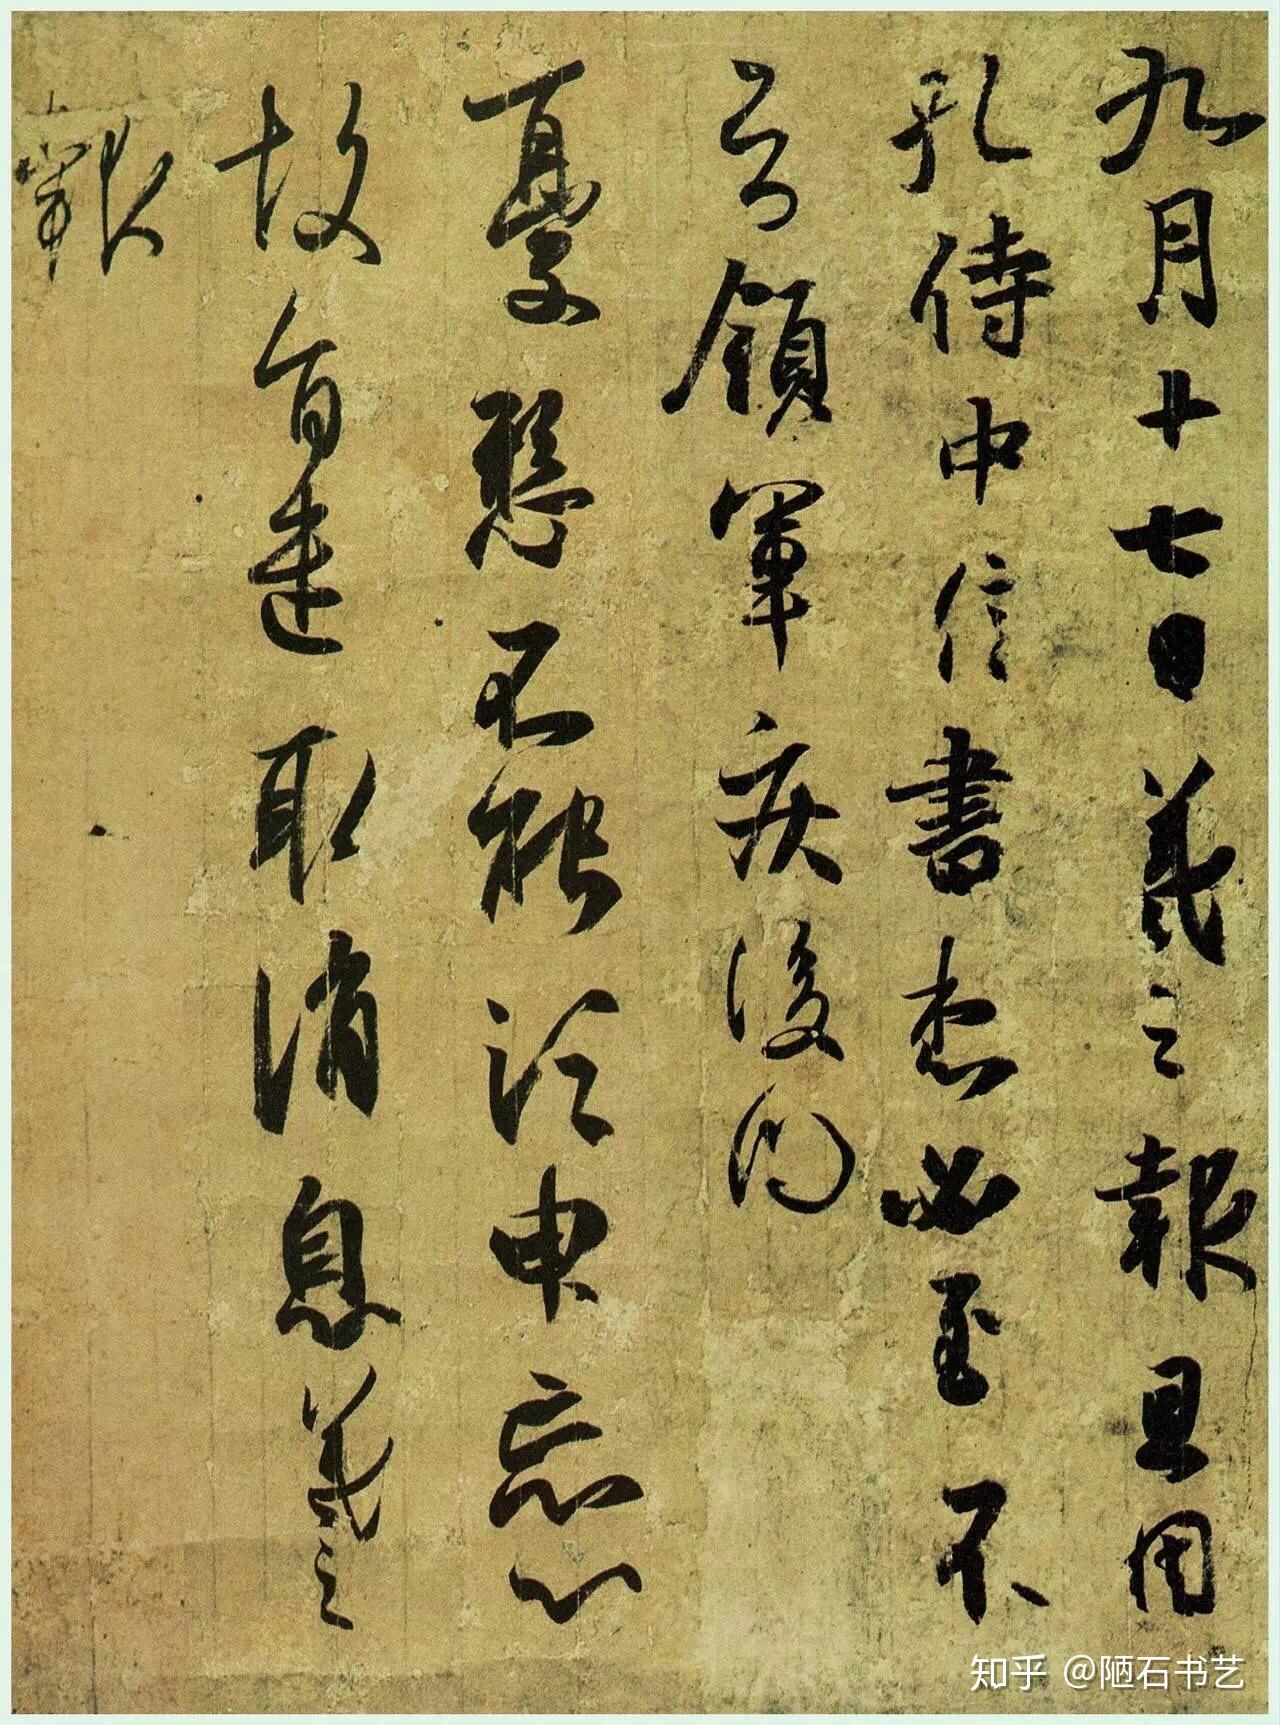 九月十七日羲之報且因
孔侍中信書想必至不
知領軍疾後問
憂懸不能須臾忘心
故旨遣取消息羲之
報
知乎 @陋石书艺